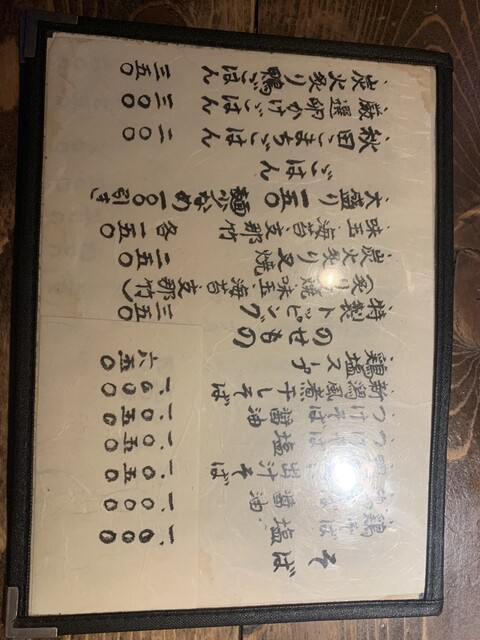 そば
鶏そば 塩 一、〇〇〇
醤油 一、〇〇〇
出汁そば 一、〇五〇
塩 一、〇五〇
つけそば 醤油 一、〇五〇
新潟風煮干しそば
鶏塩スープ 六五〇
のせもの
特製トッピング 三五〇
焼、味玉、海苔、支那竹)
炭火炙り叉焼 二五〇
味玉、海苔、支那竹 各一五〇
大盛り 一五〇 麺少なめ 一〇〇引き
ごはん
秋田こまちごはん 二〇〇
厳選卵かけごはん 三〇〇
炭火炙り鴨ごはん 三五〇